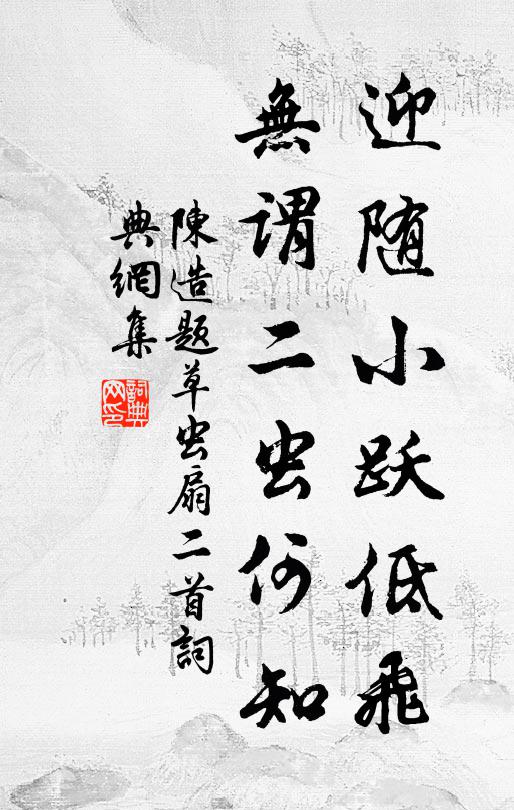 迎随小跃低飛
無謂二虫何知
陳造題草虫扇二首詞
典網集
詞典网印